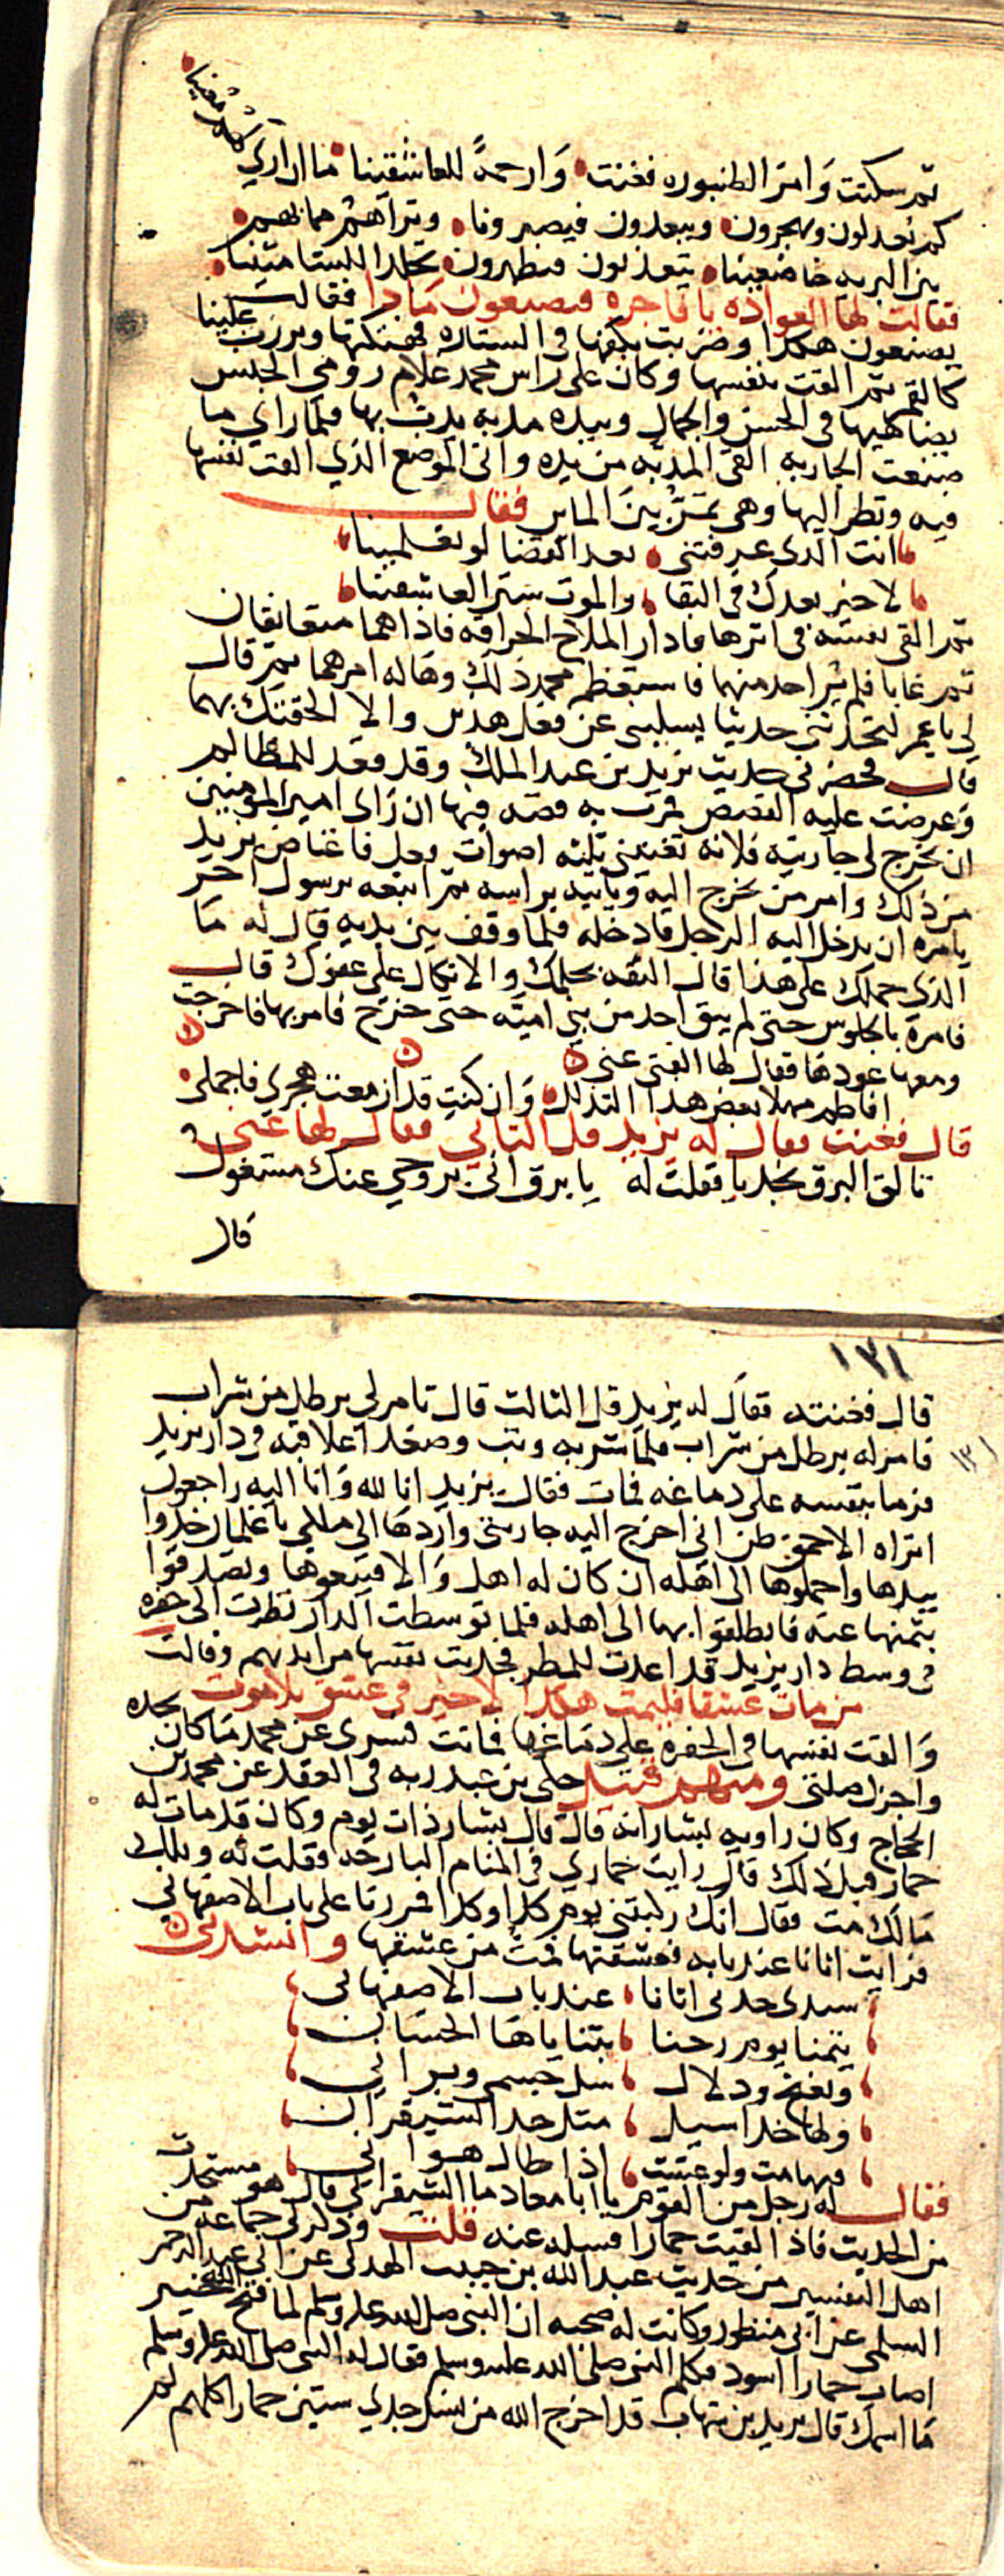 ثم سكتت وامر الطنبوره فغنت وارحمةً للعاشقينا ما ان اري لهم معينا
كم يعذلون ويهجرون ويبعدون فيصبرونا وتراهم مما بهم
بين البريه خاضعينا يتعذبون فيظهرون تجلدا للشامتينا
فقالت لها العواده يا فاجره فيصنعون ماذا فقالت
يصنعون هكذا وضربت بكفها في الستاره فهتكتها وبرزت علينا
كالقمر ثم القت بنفسها وكان على راس محمد غلام رومي الجنس
يضاهيها في الحسن والجمال وبيده مذبه يذب بها فلما راي ما
صنعت الجاريه القى المذبه من يده واتى الموضع الذي القت نفسها
فيه ونظر اليها وهي تمر بين الماء فقال
انت الذي عرفتني بعد القضا لو تعلمينا
لا خير بعدك في البقا والموت ستر العاشقينا
ثم القى نفسه في اثرها فادار الملاح الحراقه فاذا هما متعانقان
ثم غابا فلم ير احد منهما فاستعظم محمد ذلك وهاله امرهما ثم قال
لي يا عمر لتحدثني حديثا يسليني عن فعل هذين والا الحقتك بهما
قال فحضرني حديث يزيد بن عبد الملك وقد قعد للمظالم
وعرضت عليه القصص فمرت به قصه فيها ان راى امير المومنين
ان يخرج لي جاريته فلانه تغنيني ثلثه اصوات فعل فاغتاض يزيد
من ذلك وامر من يخرج اليه وياتيه براسه ثم اتبعه برسول اخر
يامره ان يدخل اليه الرجل فادخله فلما وقف بين يديه قال له ما
الذي حملك على هذا قال الثقه بحلمك والاتكال على عفوك قال
فامره بالجلوس حتى لم يبق احد من بني اميه حتى خرج فامر بها فاخرجت
ومعها عودها فقال لها الفتى غني
افاطم مهلا بعض هذا التدلل وان كنت قد ازمعت هجري فاجملي
قال فغنت فقال له يزيد قل الثاني فقال لها غني
تالق البرق نجديا فقلت له يا برق اني بروحي عنك مشغول
قال
١٣١
١٣١
قال فغنته فقال له يزيد قل الثالث قال تامر لي برطل من شراب
فامر له برطل من شراب فلما شربه وثب وصعد اعلا قبه في دار يزيد
فرما بنفسه على دماغه فمات فقال يزيد انا لله وانا اليه راجعون
اتراه الاحمق ظن اني اخرج اليه جاريتي واردها الى ملكي يا غلمان خذوا
بيدها واحملوها الى اهله ان كان له اهل والا فبيعوها وتصدقوا
بثمنها عنه فانطلقوا بها الى اهله فلما توسطت الدار نظرت الى حفره
في وسط دار يزيد قد اعدت للمطر فجذبت نفسها من ايديهم وقالت
من مات عشقا فليمت هكذا لا خير في عشق بلا موت
والقت نفسها في الحفره على دماغها فماتت فسرى عن محمد ما كان يجده
واجزل صلتي ومنهم قتيل حكى بن عبد ربه في العقد عن محمد بن
الحجاج وكان راويه لبشار انه قال قال بشار ذات يوم وكان قد مات له
حمار قبل ذلك قال رايت حماري في المنام البارحه وقلت له ويلك
مالك مت فقال انك ركبتني يوم كذا وكذا فمررنا على باب الاصفهاني
فرايت اتانا عند بابه فعشقتها فمت من عشقها وانشدني
سيدي خذ لي اتانا عند باب الاصفهاني
تيمتنا يوم رحنا بثناياها الحسان
وبغنج ودلال سل جسمي وبراني
ولها خد اسيل مثل خد الشيقران
فبها مت ولو عشت اذا طال هواني
فقال له رجل من القوم يا ابا معاذ ما الشيقران قال هو
من الحديث فاذا لقيت حمارا فسله عنه قلت وذكر لي جماعه من
اهل التفسير من حديث عبد الله بن حبيب الهذلي عن ابي عبد الرحمن
السلمي عن ابي منظور وكانت له صحبه ان النبي صلى الله عليه وسلم لما فتح الله خيبر
اصاب حمارا اسود فكلم النبي صلى الله عليه وسلم فقال له النبي صلى الله عليه وسلم
ما اسمك قال يزيد بن شهاب قد اخرج الله من نسل جدي ستين حمارا كلهم لم